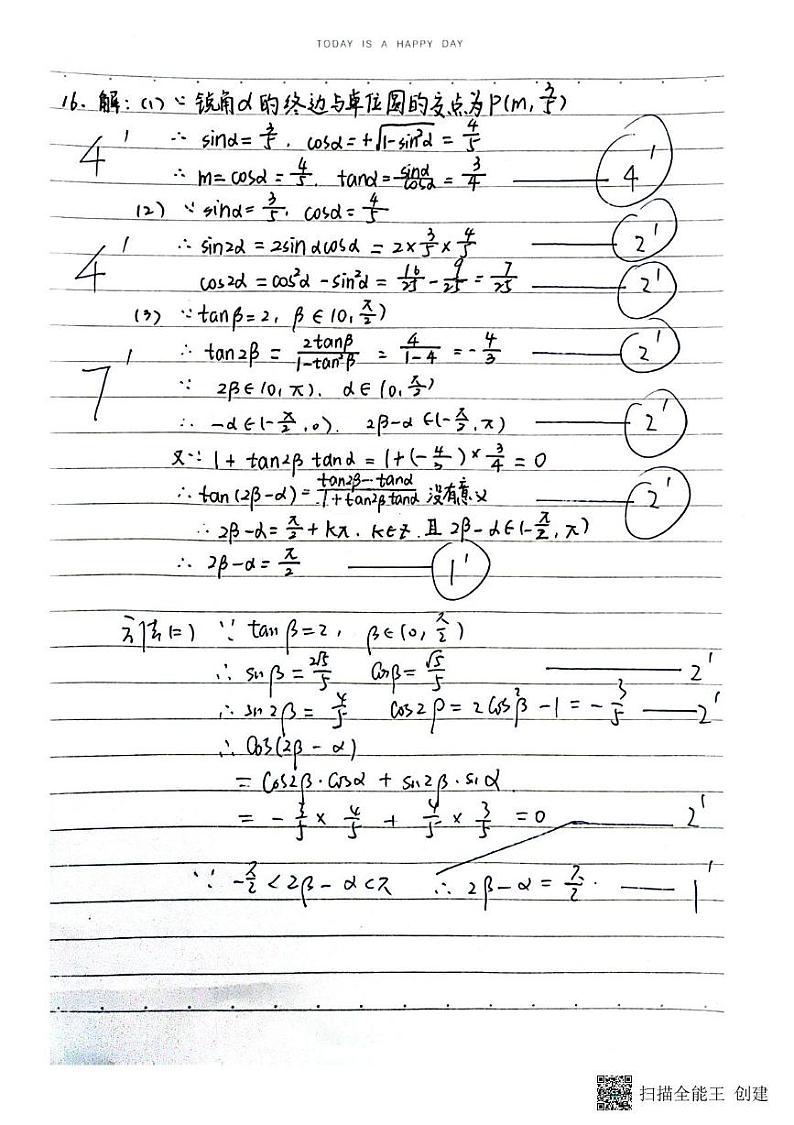 TODAY IS A HAPPY DAY
16. 解：(1) ∵ 锐角α的终边与单位圆的交点为P(m, 3/5)
4' ∴ sinα=3/5, cosα=+√(1-sin²α)=4/5
∴ m=cosα=4/5, tanα=sinα/cosα=3/4 —— 4'
(2) ∵ sinα=3/5, cosα=4/5
4' ∴ sin2α=2sinαcosα=2×3/5×4/5 —— 2'
cos2α=cos²α-sin²α=16/25-9/25=7/25 —— 2'
(3) ∵ tanβ=2, β∈(0, π/2)
7' ∴ tan2β=2tanβ/(1-tan²β)=4/(1-4)=-4/3 —— 2'
∵ 2β∈(0,π), α∈(0,π/2)
∴ -α∈(-π/2,0), 2β-α∈(-π/2,π) —— 2'
又∵ 1+tan2βtanα=1+(-4/3)×3/4=0
∴ tan(2β-α)=(tan2β-tanα)/(1+tan2βtanα) 没有意义 —— 2'
∴ 2β-α=π/2+kπ, k∈Z 且 2β-α∈(-π/2,π)
∴ 2β-α=π/2 —— 1'
方法(二) ∵ tanβ=2, β∈(0, π/2)
∴ sinβ=2√5/5 cosβ=√5/5 —— 2'
∴ sin2β=4/5 cos2β=2cos²β-1=-3/5 —— 2'
∴ cos(2β-α)
=cos2β·cosα+sin2β·sinα
=-3/5×4/5+4/5×3/5=0 —— 2'
∵ -π/2<2β-α<π ∴ 2β-α=π/2. —— 1'
扫描全能王 创建